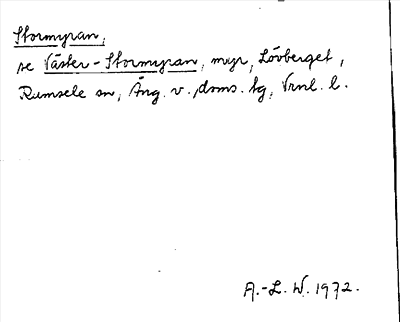 Stormyran,
se Väster-Stormyran, myr, Lövberget,
Ramsele sn, Ång. v. doms. tg, Vrnl. l.
A.-L. W. 1972.